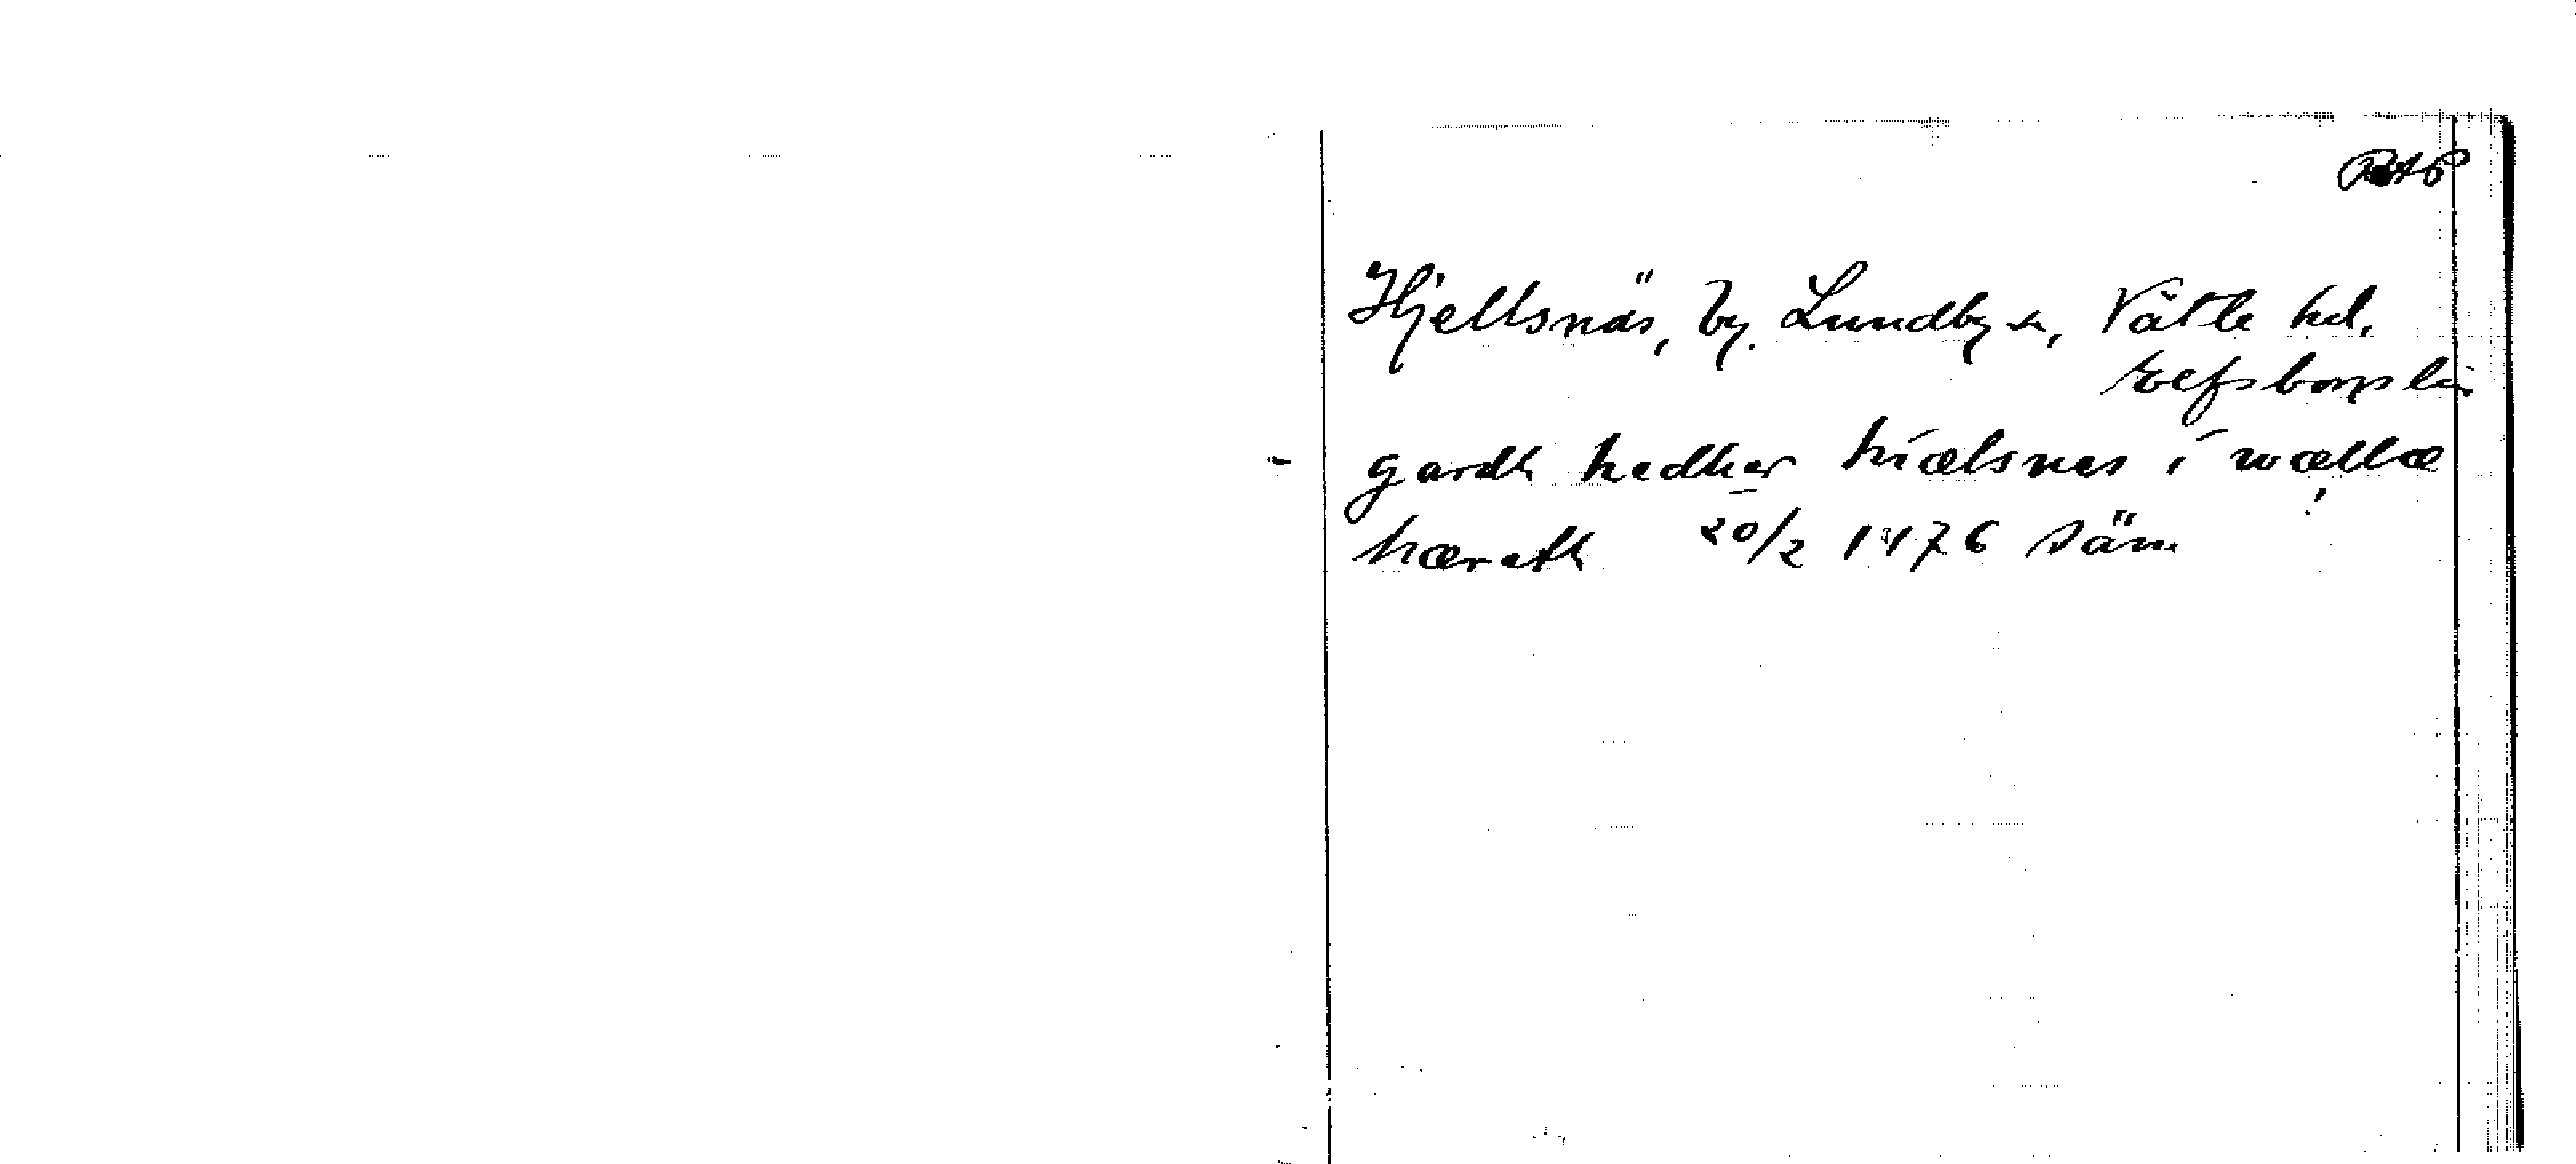 RAP
Hjellsnäs, by. Lundby sn, Vätle hd.
Elfsborgs län
gardh hedher hiælsnes i wællæ
!
hæreth 20/2 1476 Säve